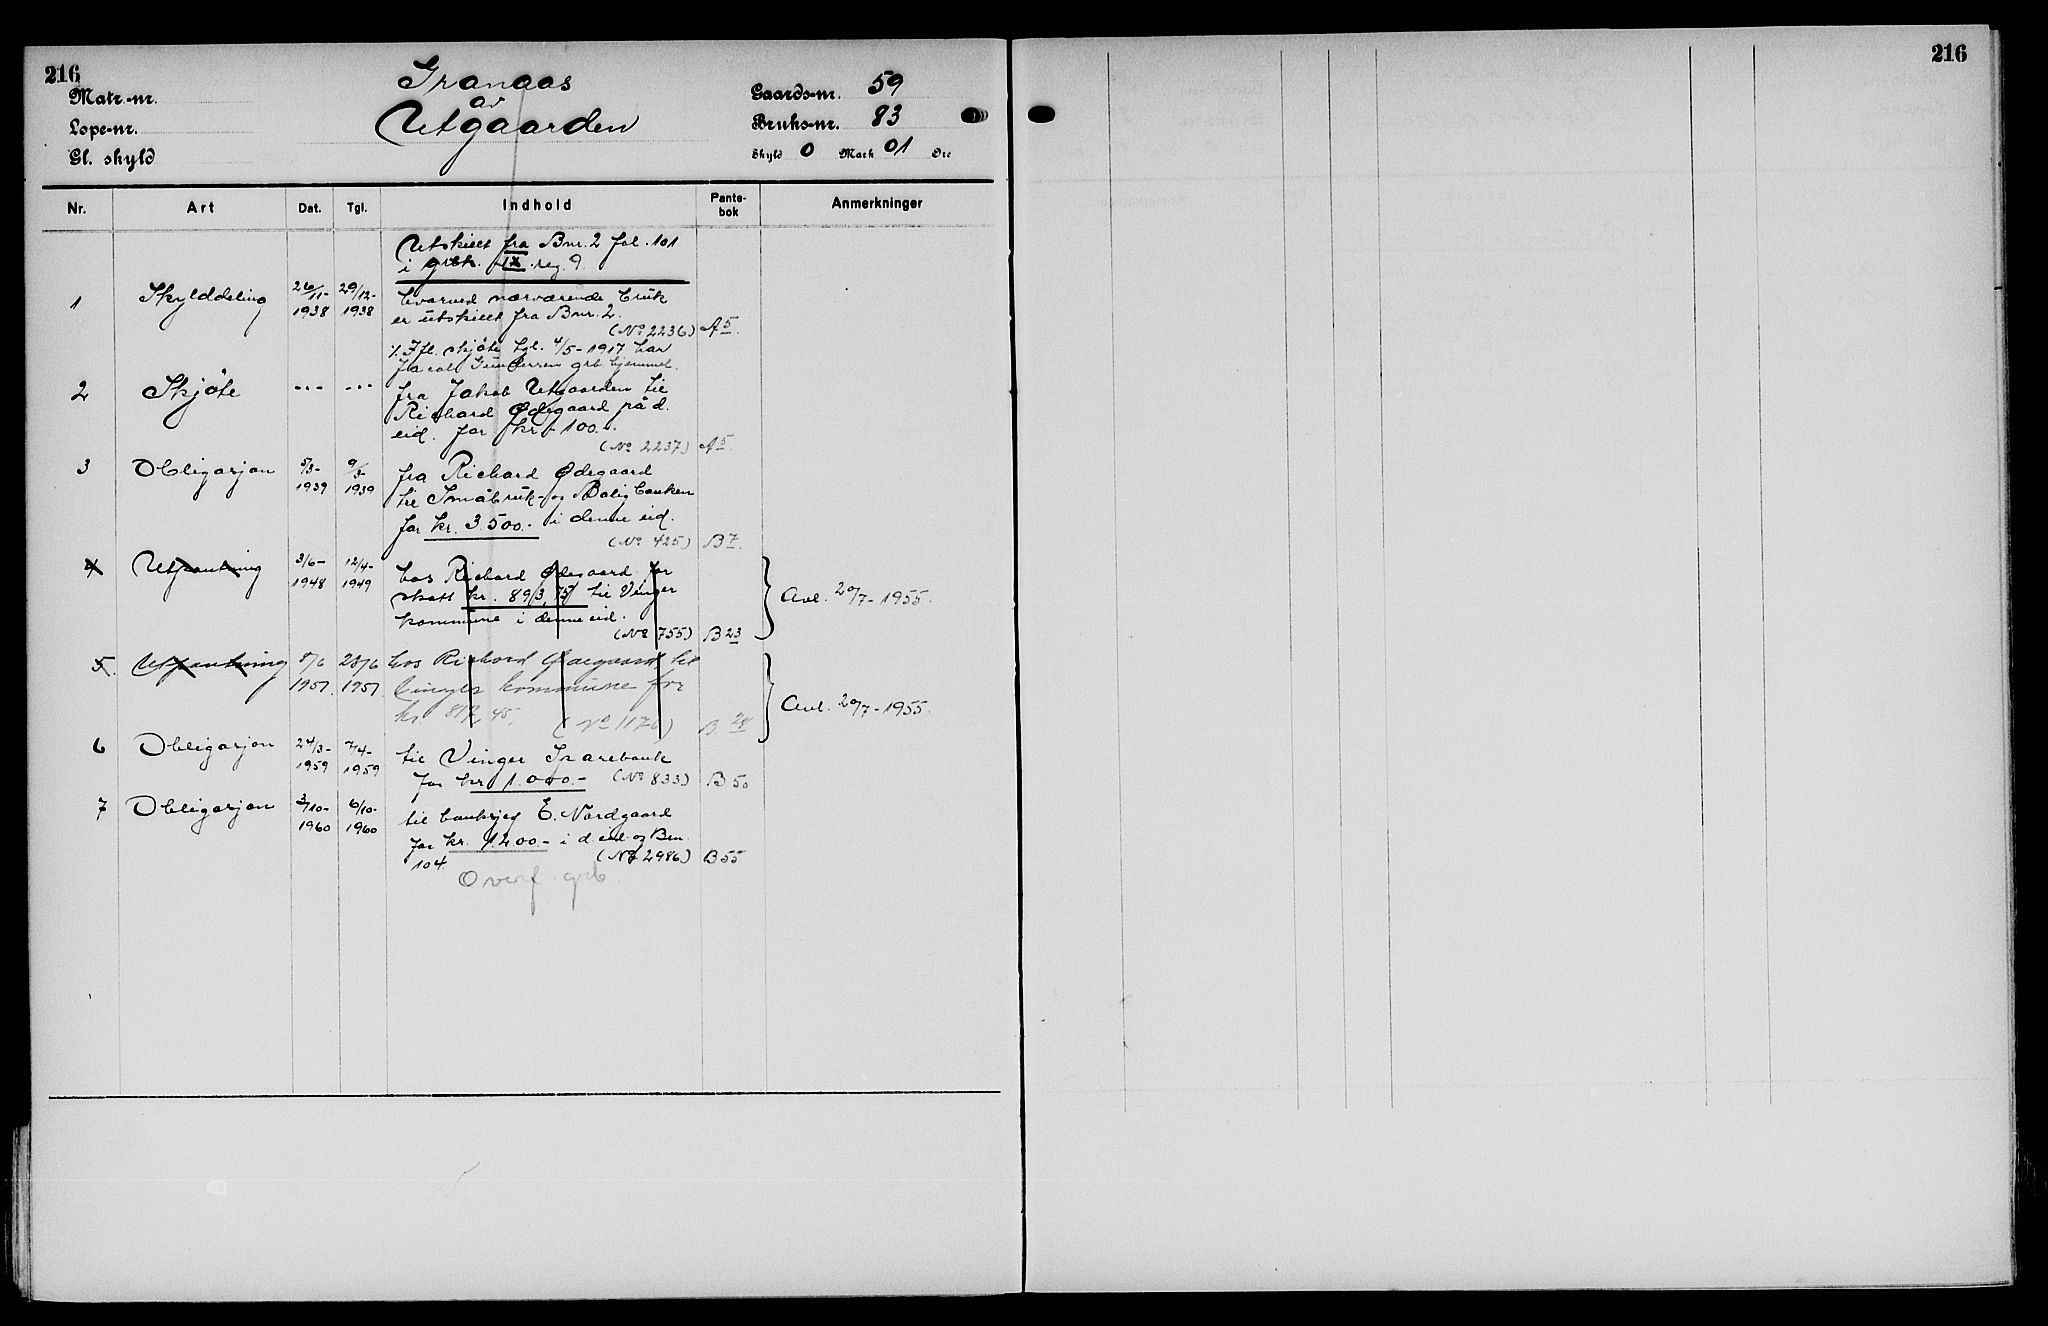 216
Matr.-nr.
Løpe-nr.
Gl. skyld
Granaas
av
Utgaarden
Gaards-nr. 59
Bruks-nr. 83
Skyld 0 Mark 01 Øre
216
Nr. Art Dat. Tgl. Indhold Pante-bok Anmerkninger
Utskillt fra Bnr. 2 fol. 101
i grbk. IX reg. 9.
1 Skylddeling 26/11-1938 29/12-1938 hvorved nærværende bruk
er utskillt fra Bnr. 2.
(No 2236) A 5.
1/. Ifl. skjøte tgl. 4/5-1917 har
Jacob Gundersen grb. hjemmel.
2 Skjøte --- --- fra Jakob Utgaarden til
Richard Ødegaard på d.
eid. for kr. 100.-
(No 2237) A 5.
3 Obligasjon 5/3-1939 9/3-1939 fra Richard Ødegaard
til Småbruk- og Boligbanken
for kr. 3.500.- i denne eid.
(No 425) B 7.
4 Utpantning 3/6-1948 12/4-1949 hos Richard Ødegaard for
skatt kr. 893,75 til Vinger
kommune i denne eid.
(No 755) B 23
Avl. 20/7-1955.
5. Utpantning 8/6 1951. 28/6 1951 hos Richard Ødegaard, til
Vinger kommune for
kr. 817,45. (No 1176) B. 28
Avl. 20/7-1955.
6 Obligasjon 24/3-1959 7/4-1959 til Vinger Sparebank
for kr. 1.000.- (No 833) B 50
7 Obligasjon 3/10-1960 6/10-1960 til E. Nordgaard
for kr. 1200.- i d. eid. og Bnr.
104. (No 2986) B 55
Overf. grb.